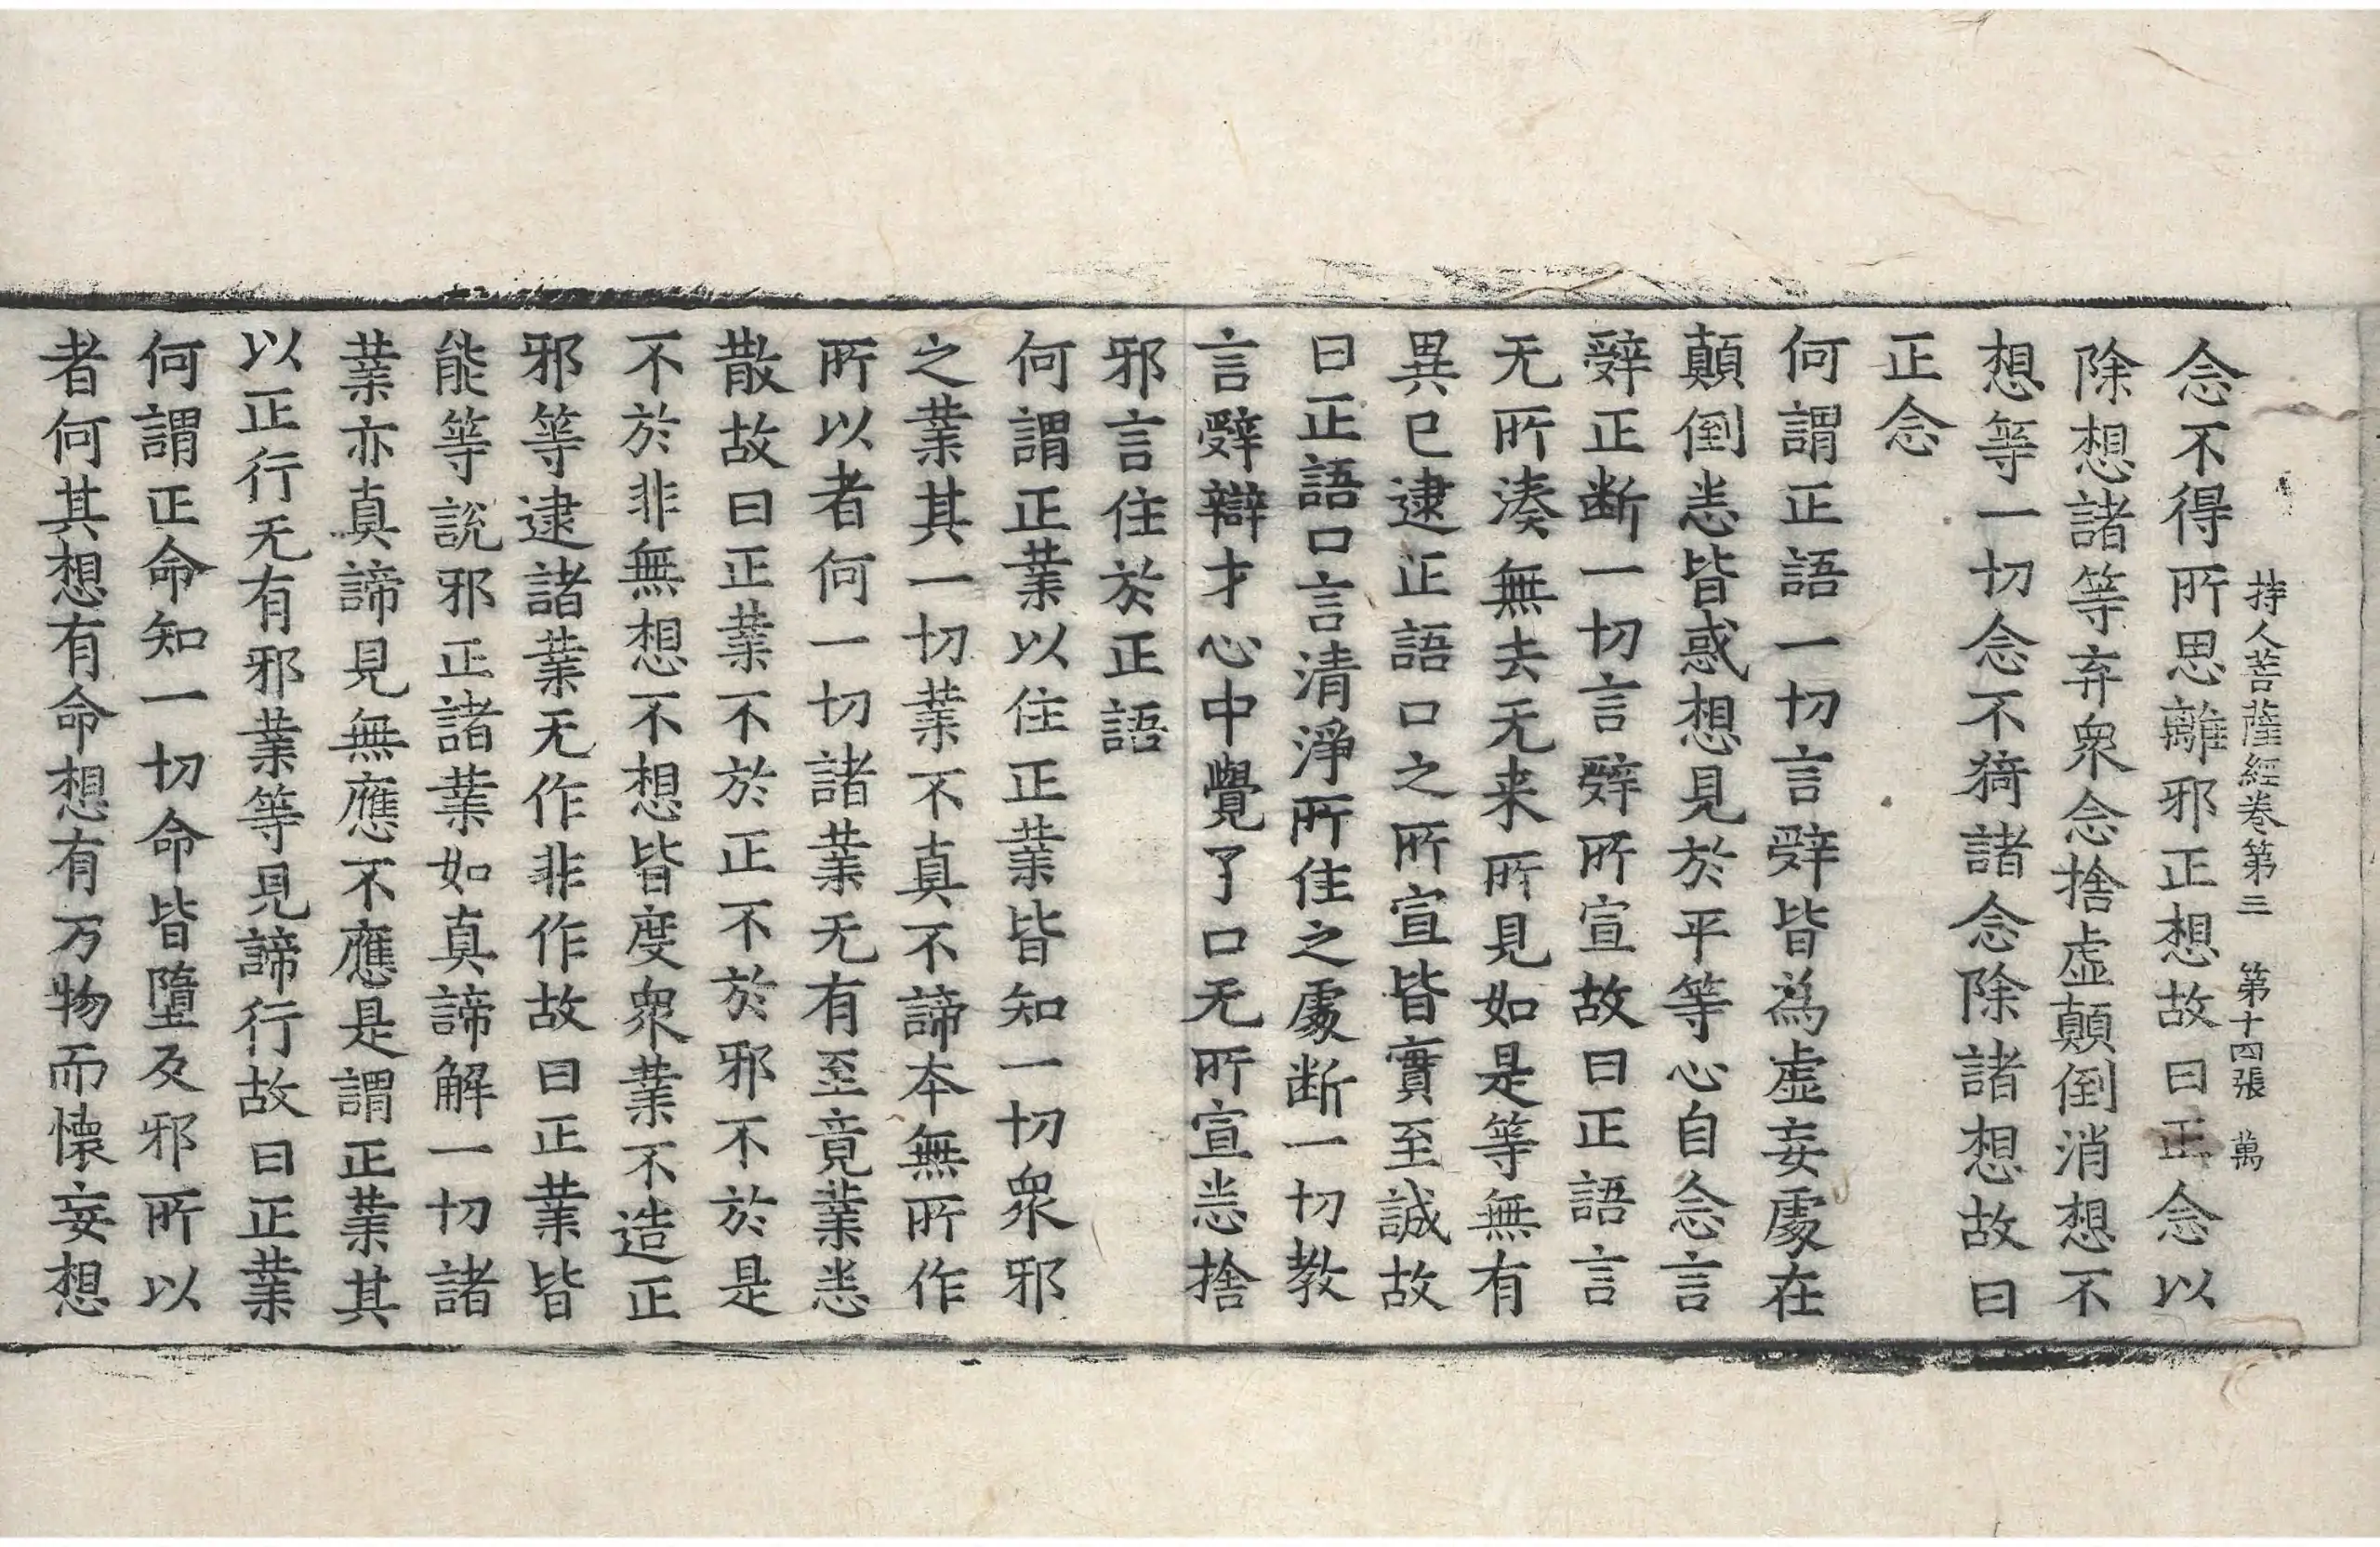 持人菩薩經卷第三 第十四張 萬
念不得所思離邪正想故曰正念以
除想諸等弃衆念捨虛顛倒消想不
想等一切念不猗諸念除諸想故曰
正念
何謂正語一切言辤皆為虛妄處在
顛倒恙皆惑想見於平等心自念言
辤正断一切言辤所宣故曰正語言
无所湊無去无来所見如是等無有
異已逮正語口之所宣皆實至誠故
曰正語口言清淨所住之處断一切教
言辤辯才心中覺了口无所宣恙捨
邪言住於正語
何謂正業以住正業皆知一切衆邪
之業其一切業不真不諦本無所作
所以者何一切諸業无有至竟業恙
散故曰正業不於正不於邪不於是
不於非無想不想皆度衆業不造正
邪等逮諸業无作非作故曰正業皆
能等說邪正諸業如真諦解一切諸
業亦真諦見無應不應是謂正業其
以正行无有邪業等見諦行故曰正業
何謂正命知一切命皆墮及邪所以
者何其想有命想有万物而懷妄想